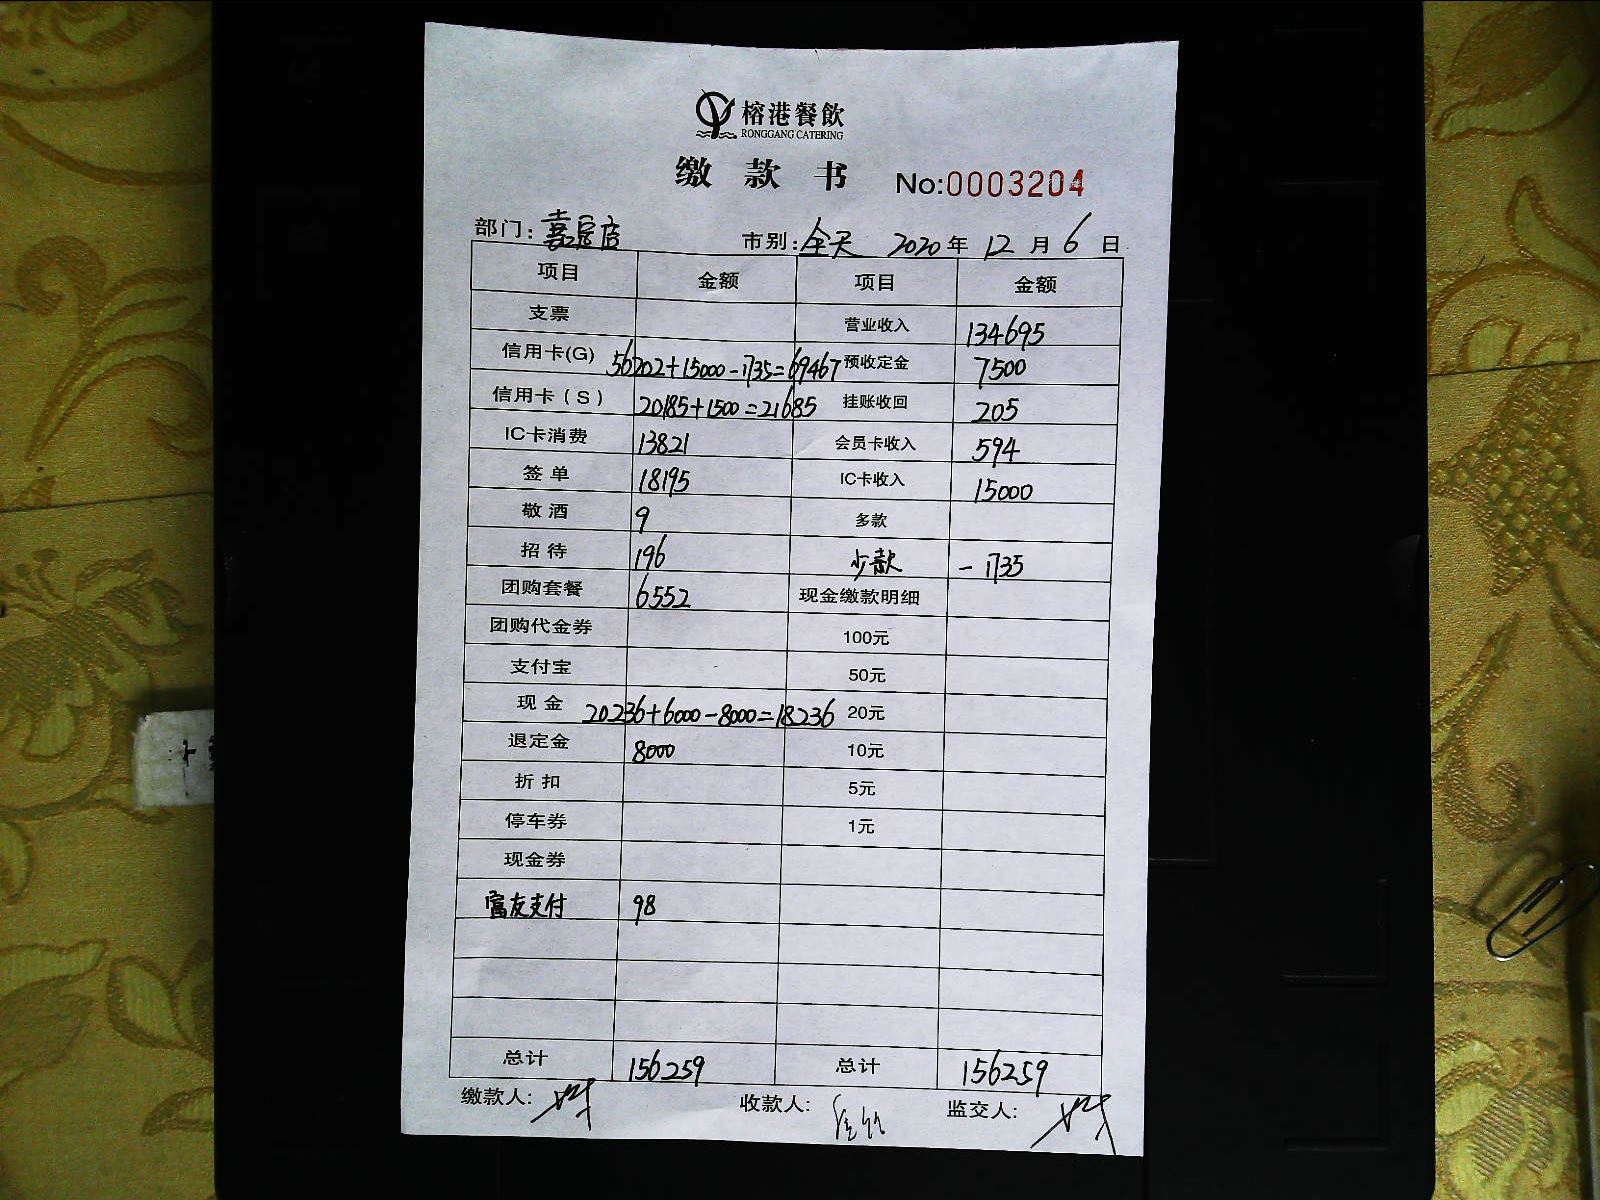 榕港餐飲
RONGGANG CATERING
缴 款 书 No:0003204
部门: 嘉定店 市别: 全天 2020 年 12 月 6 日
项目 金额 项目 金额
支票 营业收入 134695
信用卡(G) 56202+15000-1735=69467 预收定金 7500
信用卡(S) 20185+1500=21685 挂账收回 205
IC卡消费 13821 会员卡收入 594
签单 18195 IC卡收入 15000
敬酒 9 多款
招待 196 少款 -1735
团购套餐 6552 现金缴款明细
团购代金券 100元
支付宝 50元
现金 20236+6000-8000=18236 20元
退定金 8000 10元
折扣 5元
停车券 1元
现金券
富友支付 98
总计 156259 总计 156259
缴款人: 收款人: 监交人: